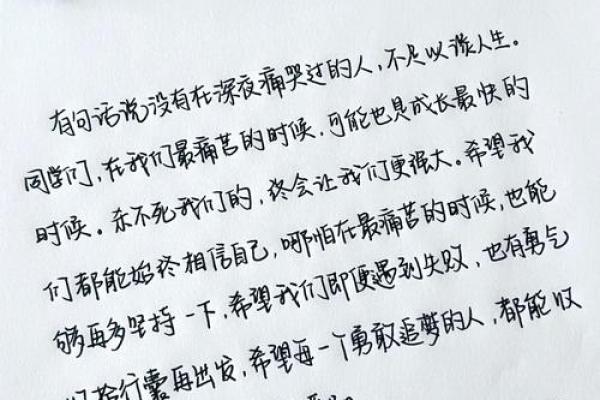 有句话说没有在深夜痛哭过的人，不足以谈人生。
同学们，在我们最痛苦的时候，可能也是成长最快的
时候。杀不死我们的，终会让我们更强大。希望我
们都能始终相信自己，哪怕在最痛苦的时候，也能
够再多坚持一下，希望我们即便遇到失败，也有勇气
拾行囊再出发，希望每一个勇敢追梦的人，都能收